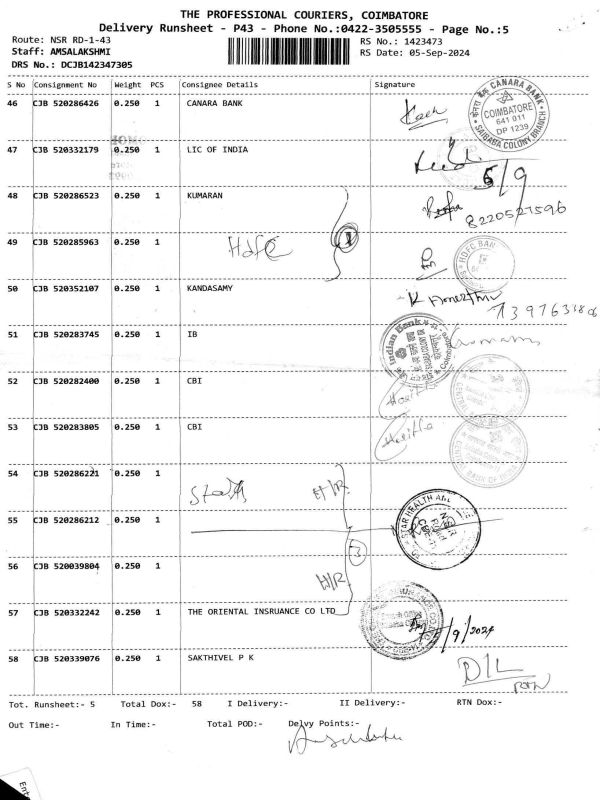 THE PROFESSIONAL COURIERS, COIMBATORE
Delivery Runsheet - P43 - Phone No.:0422-3505555 - Page No.:5
Route: NSR RD-1-43
RS No.: 1423473
Staff: AMSALAKSHMI
RS Date: 05-Sep-2024
DRS No.: DCJB142347305
S No Consignment No Weight PCS Consignee Details Signature
46 CJB 520286426 0.250 1 CANARA BANK
CANARA BANK
COIMBATORE
641 011
DP 1239
SAIBABA COLONY BRANCH
47 CJB 520332179 0.250 1 LIC OF INDIA
5/9
48 CJB 520286523 0.250 1 KUMARAN
8220521596
49 CJB 520285963 0.250 1
Hdfc
1
HDFC BAN
50 CJB 520352107 0.250 1 KANDASAMY
51 CJB 520283745 0.250 1 IB
Indian Bank
52 CJB 520282400 0.250 1 CBI
53 CJB 520283805 0.250 1 CBI
Haritha
54 CJB 520286221 0.250 1
H/R
STAR HEALTH AND
55 CJB 520286212 0.250 1
3
56 CJB 520039804 0.250 1
H/R
57 CJB 520332242 0.250 1 THE ORIENTAL INSRUANCE CO LTD
/9/2024
58 CJB 520339076 0.250 1 SAKTHIVEL P K
D/L
RTN
Tot. Runsheet:- 5 Total Dox:- 58 I Delivery:- II Delivery:- RTN Dox:-
Out Time:- In Time:- Total POD:- Delvy Points:-